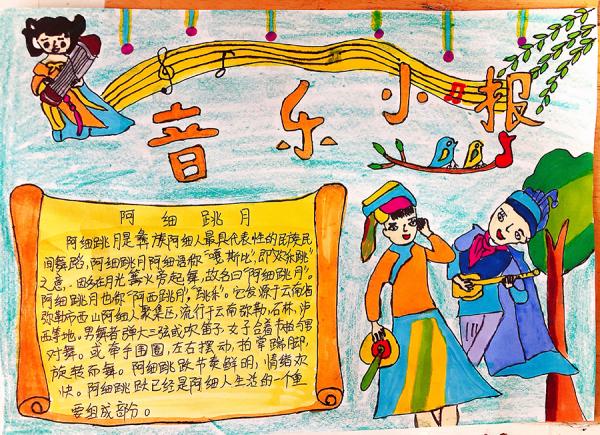 音乐小报
阿细跳月
阿细跳月是彝族阿细人最具代表性的民族民
间舞蹈,阿细跳月阿细语称“嘎斯比”,即“欢乐跳”
之意。因多在月光篝火旁起舞,故名曰“阿细跳月”。
阿细跳月也称“阿西跳月”,“跳乐”。它发源于云南省
弥勒市西山阿细人聚集区,流行于云南弥勒,石林,泸
西等地。男舞者弹大三弦或吹笛子,女子合着节拍与男
对舞。或牵手围圈,左右摆动,拍掌踹脚,
旋转而舞。阿细跳跃节奏鲜明,情绪欢
快。阿细跳跃已经是阿细人生活的一个重
要组成部分。